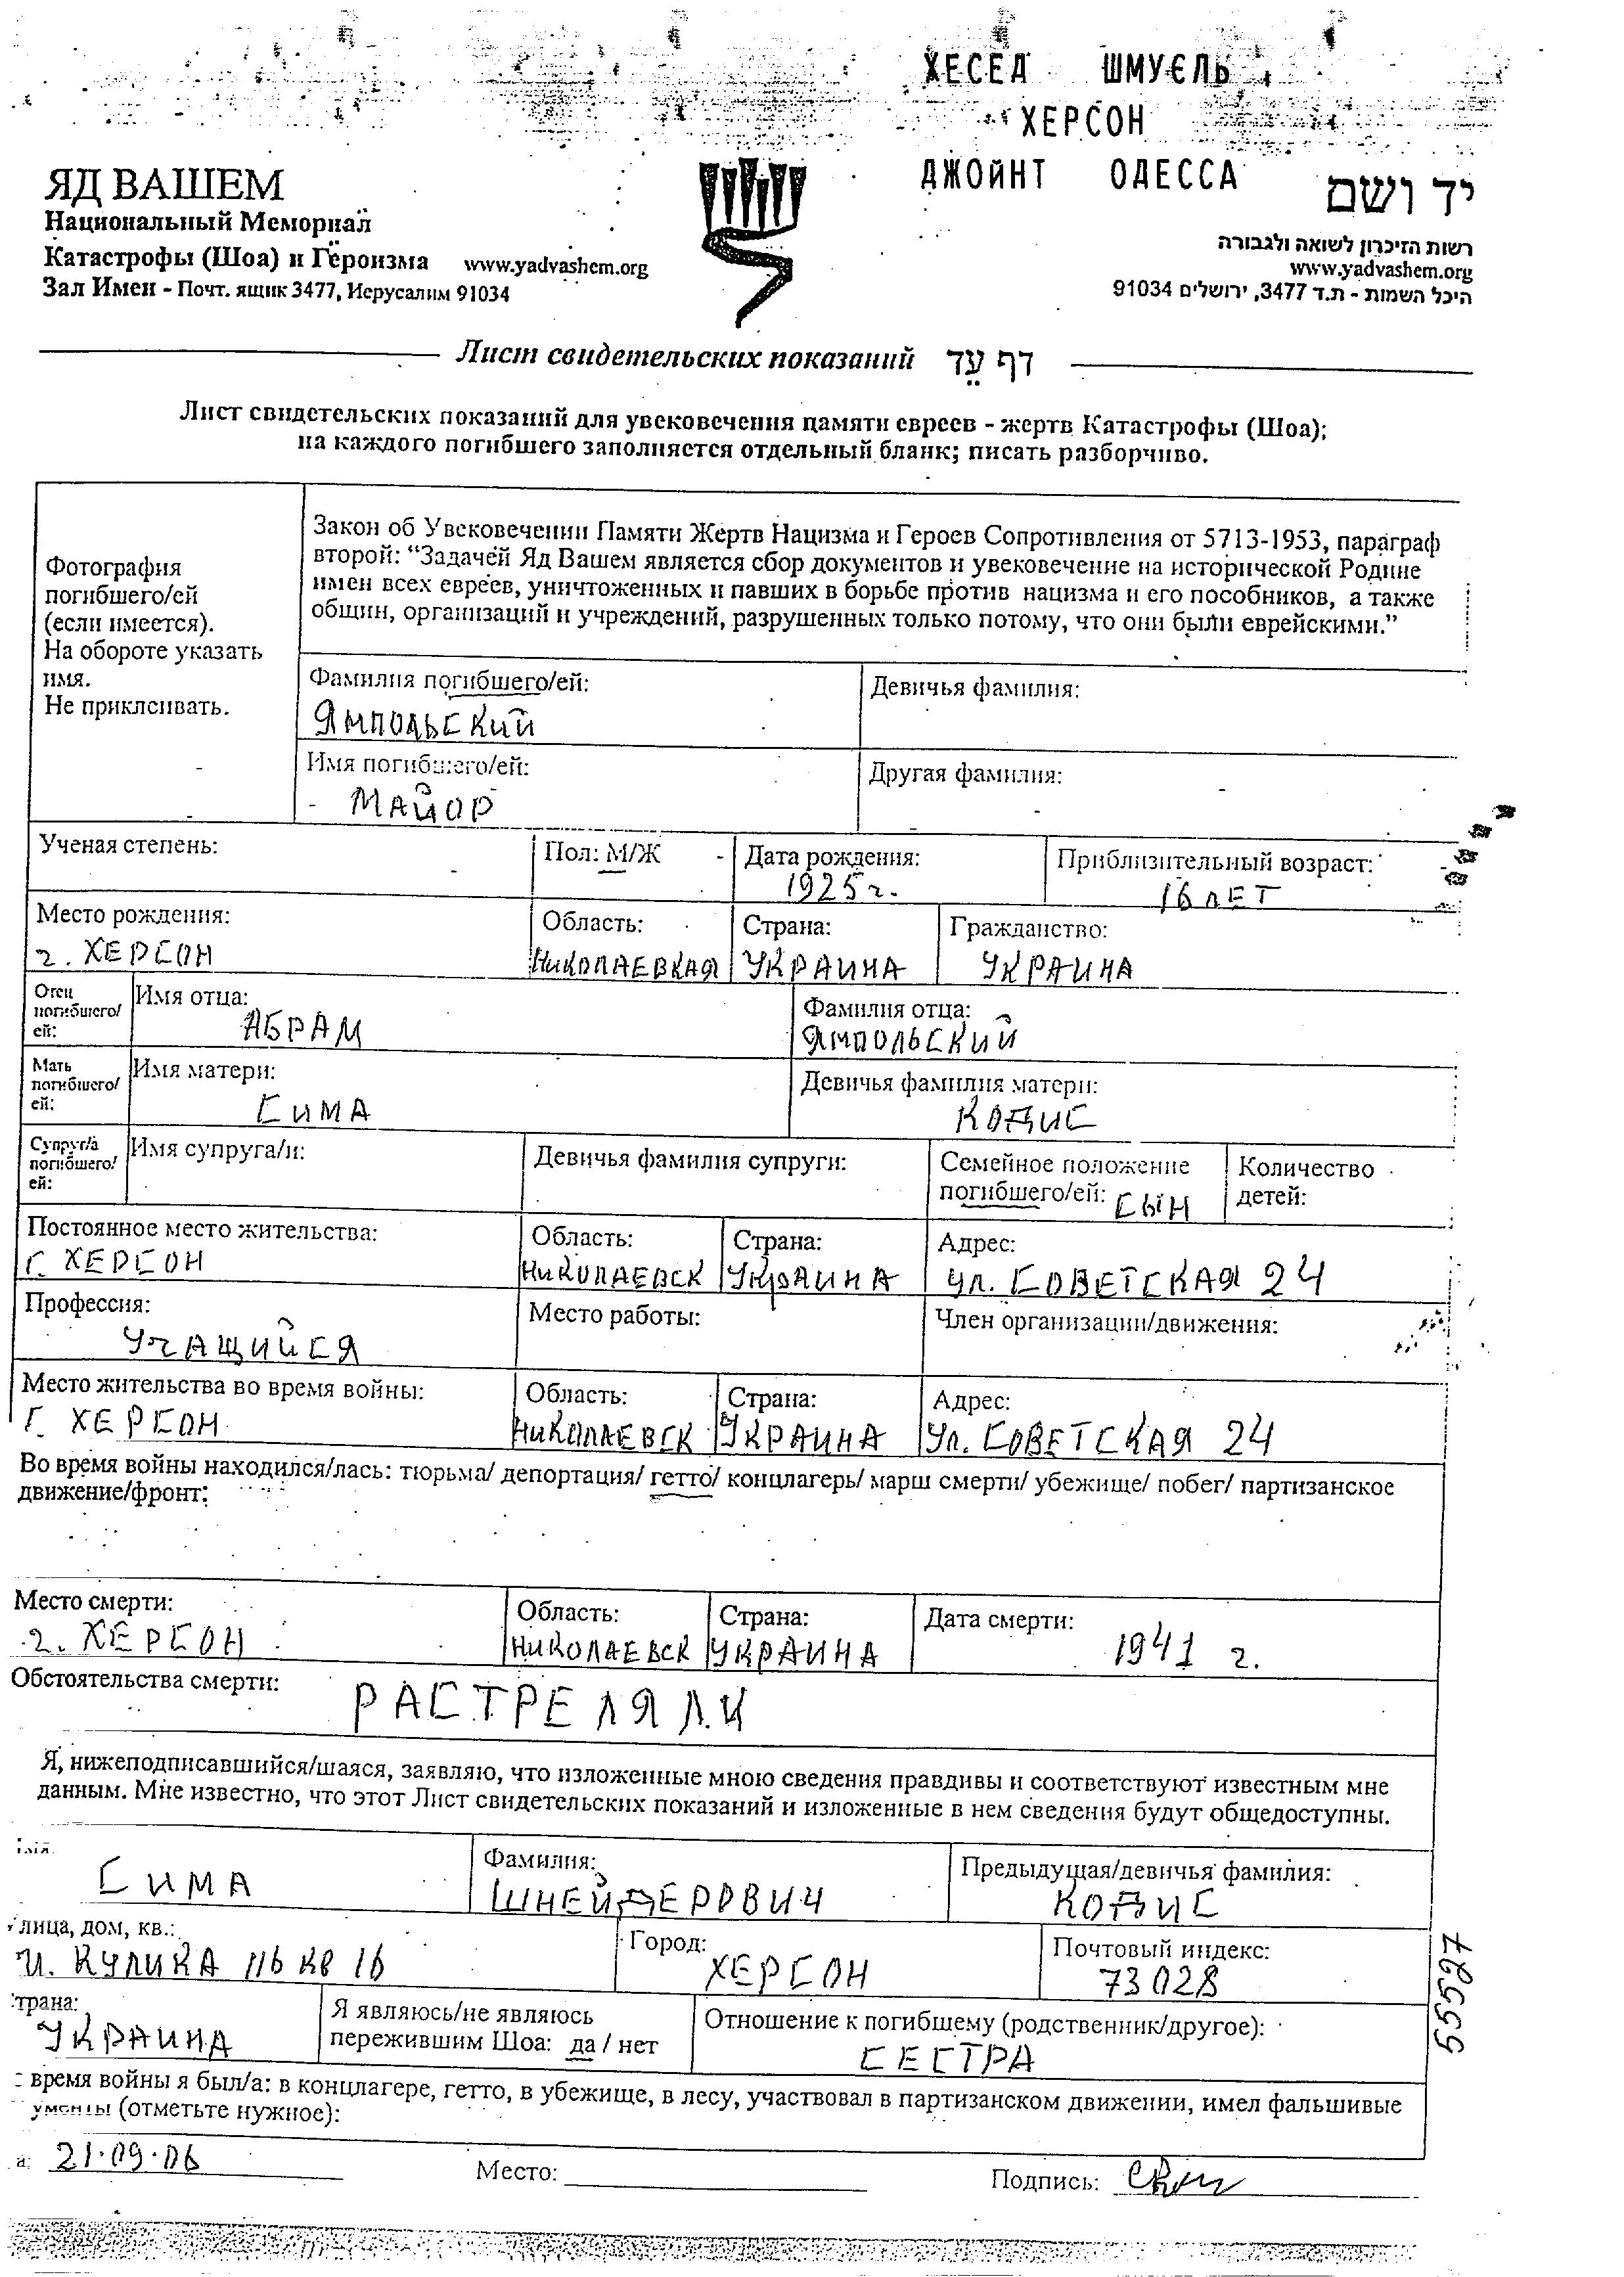 ХЕСЕД ШМУЄЛЬ
ХЕРСОН
ДЖОЙНТ ОДЕССА
ЯД ВАШЕМ
Национальный Мемориал
Катастрофы (Шоа) и Героизма www.yadvashem.org
Зал Имен - Почт. ящик 3477, Иерусалим 91034
יד ושם
רשות הזיכרון לשואה ולגבורה
www.yadvashem.org
היכל השמות - ת.ד 3477, ירושלים 91034
Лист свидетельских показаний דף עֵד
Лист свидетельских показаний для увековечения памяти евреев - жертв Катастрофы (Шоа);
на каждого погибшего заполняется отдельный бланк; писать разборчиво.
Фотография
погибшего/ей
(если имеется).
На обороте указать
имя.
Не приклеивать.
Закон об Увековечении Памяти Жертв Нацизма и Героев Сопротивления от 5713-1953, параграф
второй: “Задачей Яд Вашем является сбор документов и увековечение на исторической Родине
имен всех евреев, уничтоженных и павших в борьбе против нацизма и его пособников, а также
общин, организаций и учреждений, разрушенных только потому, что они были еврейскими.”
Фамилия погибшего/ей:
ЯМПОЛЬСКИЙ
Девичья фамилия:
Имя погибшего/ей:
МАЙОР
Другая фамилия:
Ученая степень:
Пол: М/Ж
Дата рождения:
1925 г.
Приблизительный возраст:
16 ЛЕТ
Место рождения:
г. ХЕРСОН
Область:
НИКОЛАЕВКАЯ
Страна:
УКРАИНА
Гражданство:
УКРАИНА
Отец
погибшего/
ей:
Имя отца:
АБРАМ
Фамилия отца:
ЯМПОЛЬСКИЙ
Мать
погибшего/
ей:
Имя матери:
СИМА
Девичья фамилия матери:
КОДИС
Супруг/а
погибшего/
ей:
Имя супруга/и:
Девичья фамилия супруги:
Семейное положение
погибшего/ей: СЫН
Количество
детей:
Постоянное место жительства:
Г. ХЕРСОН
Область:
НИКОЛАЕВСК
Страна:
УКРАИНА
Адрес:
УЛ. СОВЕТСКАЯ 24
Профессия:
УЧАЩИЙСЯ
Место работы:
Член организации/движения:
Место жительства во время войны:
Г. ХЕРСОН
Область:
НИКОЛАЕВСК
Страна:
УКРАИНА
Адрес:
УЛ. СОВЕТСКАЯ 24
Во время войны находился/лась: тюрьма/ депортация/ гетто/ концлагерь/ марш смерти/ убежище/ побег/ партизанское
движение/фронт:
Место смерти:
г. ХЕРСОН
Область:
НИКОЛАЕВСК
Страна:
УКРАИНА
Дата смерти:
1941 г.
Обстоятельства смерти:
РАСТРЕЛЯЛИ
Я, нижеподписавшийся/шаяся, заявляю, что изложенные мною сведения правдивы и соответствуют известным мне
данным. Мне известно, что этот Лист свидетельских показаний и изложенные в нем сведения будут общедоступны.
СИМА
Фамилия:
ШНЕЙДЕРОВИЧ
Предыдущая/девичья фамилия:
КОДИС
лица, дом, кв.:
И. КУЛИКА 116 КВ 16
Город:
ХЕРСОН
Почтовый индекс:
73028
трана:
УКРАИНА
Я являюсь/не являюсь
пережившим Шоа: да / нет
Отношение к погибшему (родственник/другое):
СЕСТРА
время войны я был/а: в концлагере, гетто, в убежище, в лесу, участвовал в партизанском движении, имел фальшивые
ументы (отметьте нужное):
а: 21.09.06
Место:
Подпись:
55527